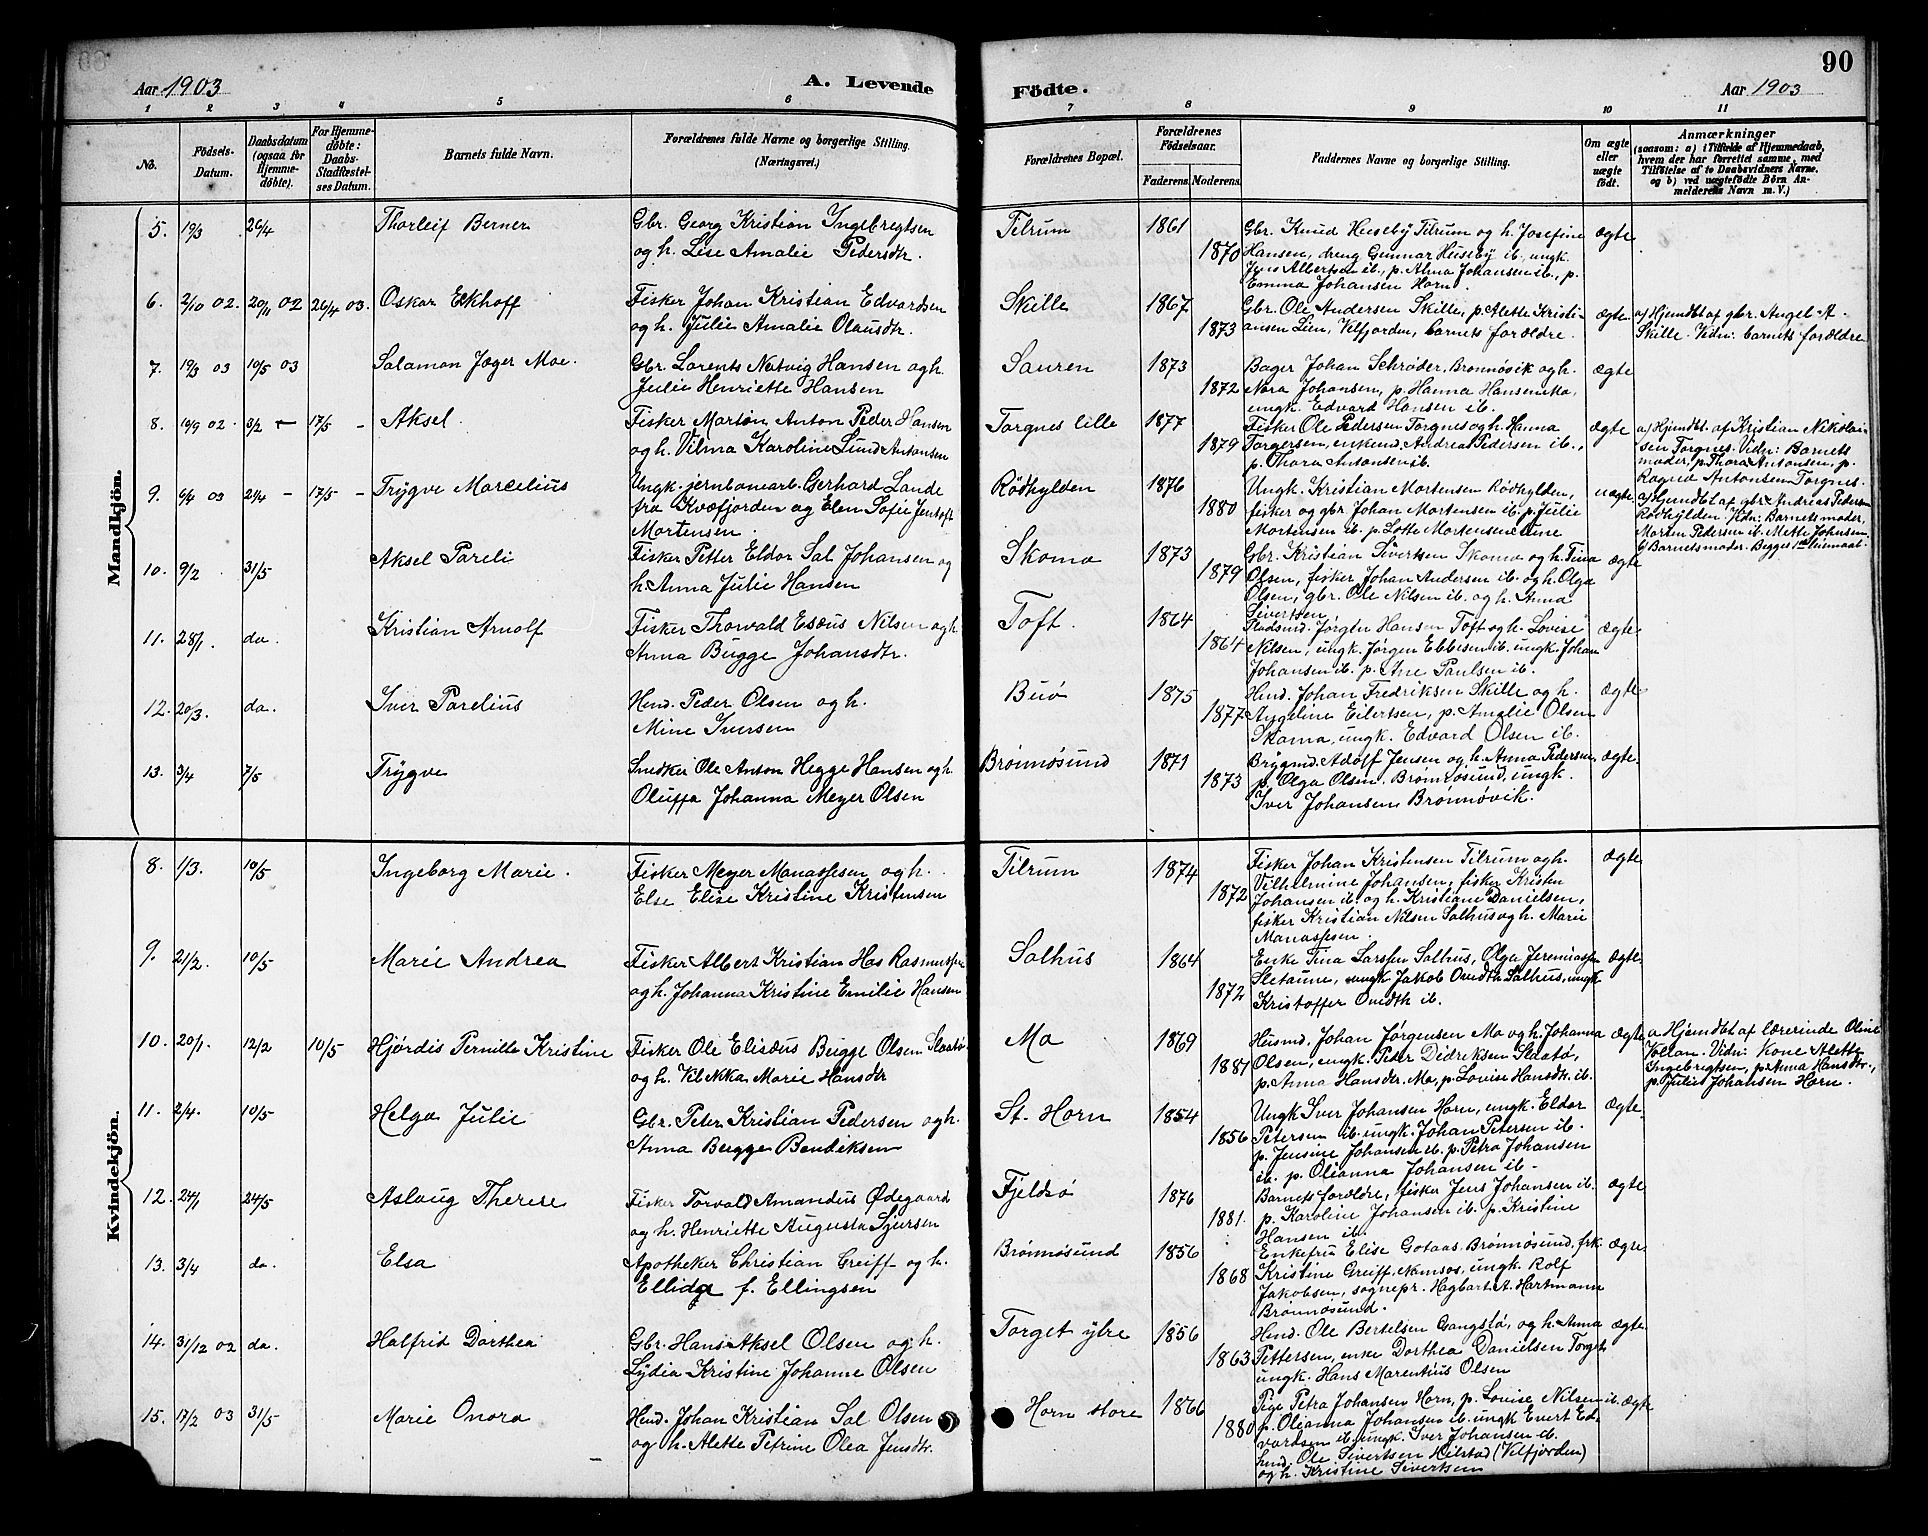 90
Aar 1903
A. Levende
Födte.
Aar 1903
1 2 3 4 5 6 7 8 9 10 11
No.
Födsels-
Datum.
Daabsdatum
(ogsaa for
Hjemme-
døbte).
For Hjemme-
døbte:
Daabs-
Stadfæstel-
ses Datum.
Barnets fulde Navn.
Forældrenes fulde Navne og borgerlige Stilling.
(Næringsvei.)
Forældrenes Bopæl.
Forældrenes
Födselsaar.
Faderens. Moderens.
Faddernes Navne og borgerlige Stilling.
Om ægte
eller
uægte
født.
Anmærkninger
(saasom: a) i Tilfælde af Hjemmedaab,
hvem der har forrettet samme, med
Tilføielse af to Daabsvidners Navne,
og b) ved uægtefødte Børn An-
melderens Navn m. V.)
Mandkjön.
5. 19/3 26/4 Thorleif Berner
Gbr. Georg Kristian Ingebregtsen
og h. Lise Amalie Pedersdtr.
Tilrum 1861 1870
Gbr. Knud Huseby Tilrum og h. Josefine
Hansen, dreng Gunnar Huseby ib, ungk.
Jens Albertsen ib., p. Alma Johansen ib., p.
Emma Johansen Horn.
ægte
6. 2/10 02. 20/11 02 26/4 03. Oskar Ekhoff
Fisker Johan Kristian Edvardsen
og h. Julie Amalie Olausdtr.
Skille 1867 1873
Gbr. Ole Andersen Skille, p. Alette Kristi-
ansen Lien, Velfjorden, barnets forældre.
ægte
a/ Hjemdbt af gbr. Angel A.
Skille. Vidn: barnets forældre
7. 19/3 03 10/5 03 Salamon Jæger Moe.
Gbr. Lorents Natvig Hansen og h.
Julie Henriette Hansen
Sauren 1873 1872
Bager Johan Schrøder, Brønnøsvik og h.
Nora Johansen, p. Hanna Hansen Mo,
ungk. Edvard Hansen ib.
ægte
8. 10/9 02. 3/2 - 17/5 - Aksel
Fisker Martin Anton Peder Hansen
og h. Vilma Karoline Lund Antonsen
Torgnes lille 1877 1879
Fisker Ole Pedersen Torgnes og h. Hanna
Torgersen, enkemd. Andreas Pedersen ib.,
p. Thora Antonsen ib.
ægte
a/ Hjemdbt. af Kristian Nikolai-
sen Torgnes. Vidn: Barnets
moder, p. Thora Antonsen, p.
Ragna Antonsen Torgnes.
9. 6/4 03 21/4 - 17/5 - Trygve Marcelius
Ungk. jernbanearb. Gerhard Lande
fra Kvæfjorden og Elen Sofie Jentoft
Mortensen.
Rødhylden 1876 1880
Ungk. Kristian Mortensen Rødhylden,
fisker og gbr. Johan Mortensen ib. p. Julie
Mortensen ib. p. Lotte Mortensen
uægte
a/ Hjemdbt af gbr. Andreas Pedersen
Rødhylden. Vidn: Barnets moder,
Morten Pedersen ib. Mette Johnsen.
b/ Barnets moder. Begges 1ste leiermaal.
10. 9/2 31/5 Aksel Pareli
Fisker Petter Eldor Sal Johansen og
h. Anna Julie Hansen
Skomo 1873 1879
Gbr. Kristian Sivertsen Skomo og h. Tina
Olsen, fisker Johan Andersen ib. og h. Olga
Olsen, gbr. Ole Nilsen ib. og h. Anna
Sivertsen
ægte
11. 28/1. do. Kristian Arnolf
Fisker Thorvald Esæus Nilsen og h.
Anna Bugge Johansdtr.
Toft. 1864 1864
Jørgen Hansen Toft og h. Lovise
Nilsen, ungk. Jørgen Ebbesen ib. ungk. Johan
Johansen ib. p. Ane Paulsen ib.
ægte
12. 20/3. do. Iver Parelius
Hmd. Peder Olsen og h.
Mine Iversen
Buø 1875 1877
Hmd. Johan Fredriksen Skille og h.
Angeline Eilertsen, p. Amalie Olsen
Skomo, ungk. Edvard Olsen ib.
ægte
13. 3/4 7/5 Trygve
Snedker Ole Anton Hegge Hansen og h.
Oluffa Johanna Meyer Olsen
Brønnøsund 1871 1873
Brygmd. Adolf Jensen og h. Anna Pedersen,
p. Olga Olsen. Brønnøsund, ungk.
Iver Johansen Brønnøvik.
ægte.
Kvindekjön.
8. 1/3. 10/5 Ingeborg Marie.
Fisker Meyer Manassesen og h.
Else Elise Kristine Kristensen
Tilrum 1874 1872
Fisker Johan Kristensen Tilrum og h.
Vilhelmine Johansen, fisker Kristen
Johansen ib. og h. Kristiane Danielsen,
fisker Kristian Nilsen Salhus og h. Marie
Manassesen.
ægte
9. 21/2. 10/5 Marie Andrea
Fisker Albert Kristian Has Rasmussen
og h. Johanna Kristine Emilie Hansen
Salhus 1864 1872
Enke Tina Larssen Salhus, Olga Jeremiassen
Sletaune, ungk Jakob Qvedth Salhus, ungk
Kristoffer Qvedth ib.
ægte
10. 20/1. 12/2 10/5 Hjørdis Pernille Kristine
Fisker Ole Elisæus Bugge Olsen Slaatø
og h. Vilekka Marie Hansdtr
Mo 1869 1881
Husmd. Johan Jørgensen Mo og h. Johanna
Olsen, ungk. Peder Didriksen Slaatø,
p. Anna Hansdtr. Mo, p. Lovise Hansdtr. ib.
ægte
a. Hjemdbt af lærerinde Oline
Vollan. Vidn: Kone Alette
Ingebrigtsen, p. Anna Hansdtr.,
p. Julie Johansen Horn.
11. 2/4. 10/5 Helga Julie
Gbr. Peter Kristian Pedersen og h.
Anna Bugge Bendiksen
St. Horn 1854 1856
Ungk Iver Johansen Horn, ungk. Eldor
Petersen ib. ungk. Johan Petersen ib.
p. Jensine Johansen ib. p. Petra Johansen
ib. p. Olianna Johansen ib.
ægte
12. 24/1 24/5 Aslaug Therese
Fisker Torvald Amandus Ødegaard
og h. Henriette Augusta Sjursen
Fjeldsø 1876 1881.
Barnets forældre, fisker Jens Johansen ib.
p. Karoline Johansen ib. p. Kristine
Hansen ib.
ægte
13. 3/4 do. Elsa
Apotheker Christian Greiff og h.
Ellida f. Ellingsen
Brønnøsund 1856 1868
Enkefru Elise Gotaas. Brønnøsund, frk.
Kristine Greiff, Namsos, ungk. Rolf
Jakobsen, sognepr. Hagbart A. Hartmann
Brønnøsund.
ægte.
14. 31/12 02 do. Halfrid Dorthea
Gbr. Hans Aksel Olsen og h.
Lydia Kristine Johanne Olsen
Torget ytre 1856 1863
Hmd. Ole Bertelsen Gangstø, og h. Anna
Pettersen, enke Dorthea Danielsen Torget
ungk. Hans Marentius Olsen
ægte
15. 17/2 03 31/5 Marie Onora
Hmd. Johan Kristian Sal Olsen
og h. Alette Petrine Olea Jensdtr.
Horn store 1866 1880
Pige Petra Johansen Horn, p. Lovise Nilsen ib.
p. Olianna Johansen ib. ungk Evert Ed-
vardsen ib. ungk. Iver Johansen ib.
hmd. Ole Sivertsen Heilstad (Velfjorden)
og h. Kristine Sivertsen
ægte